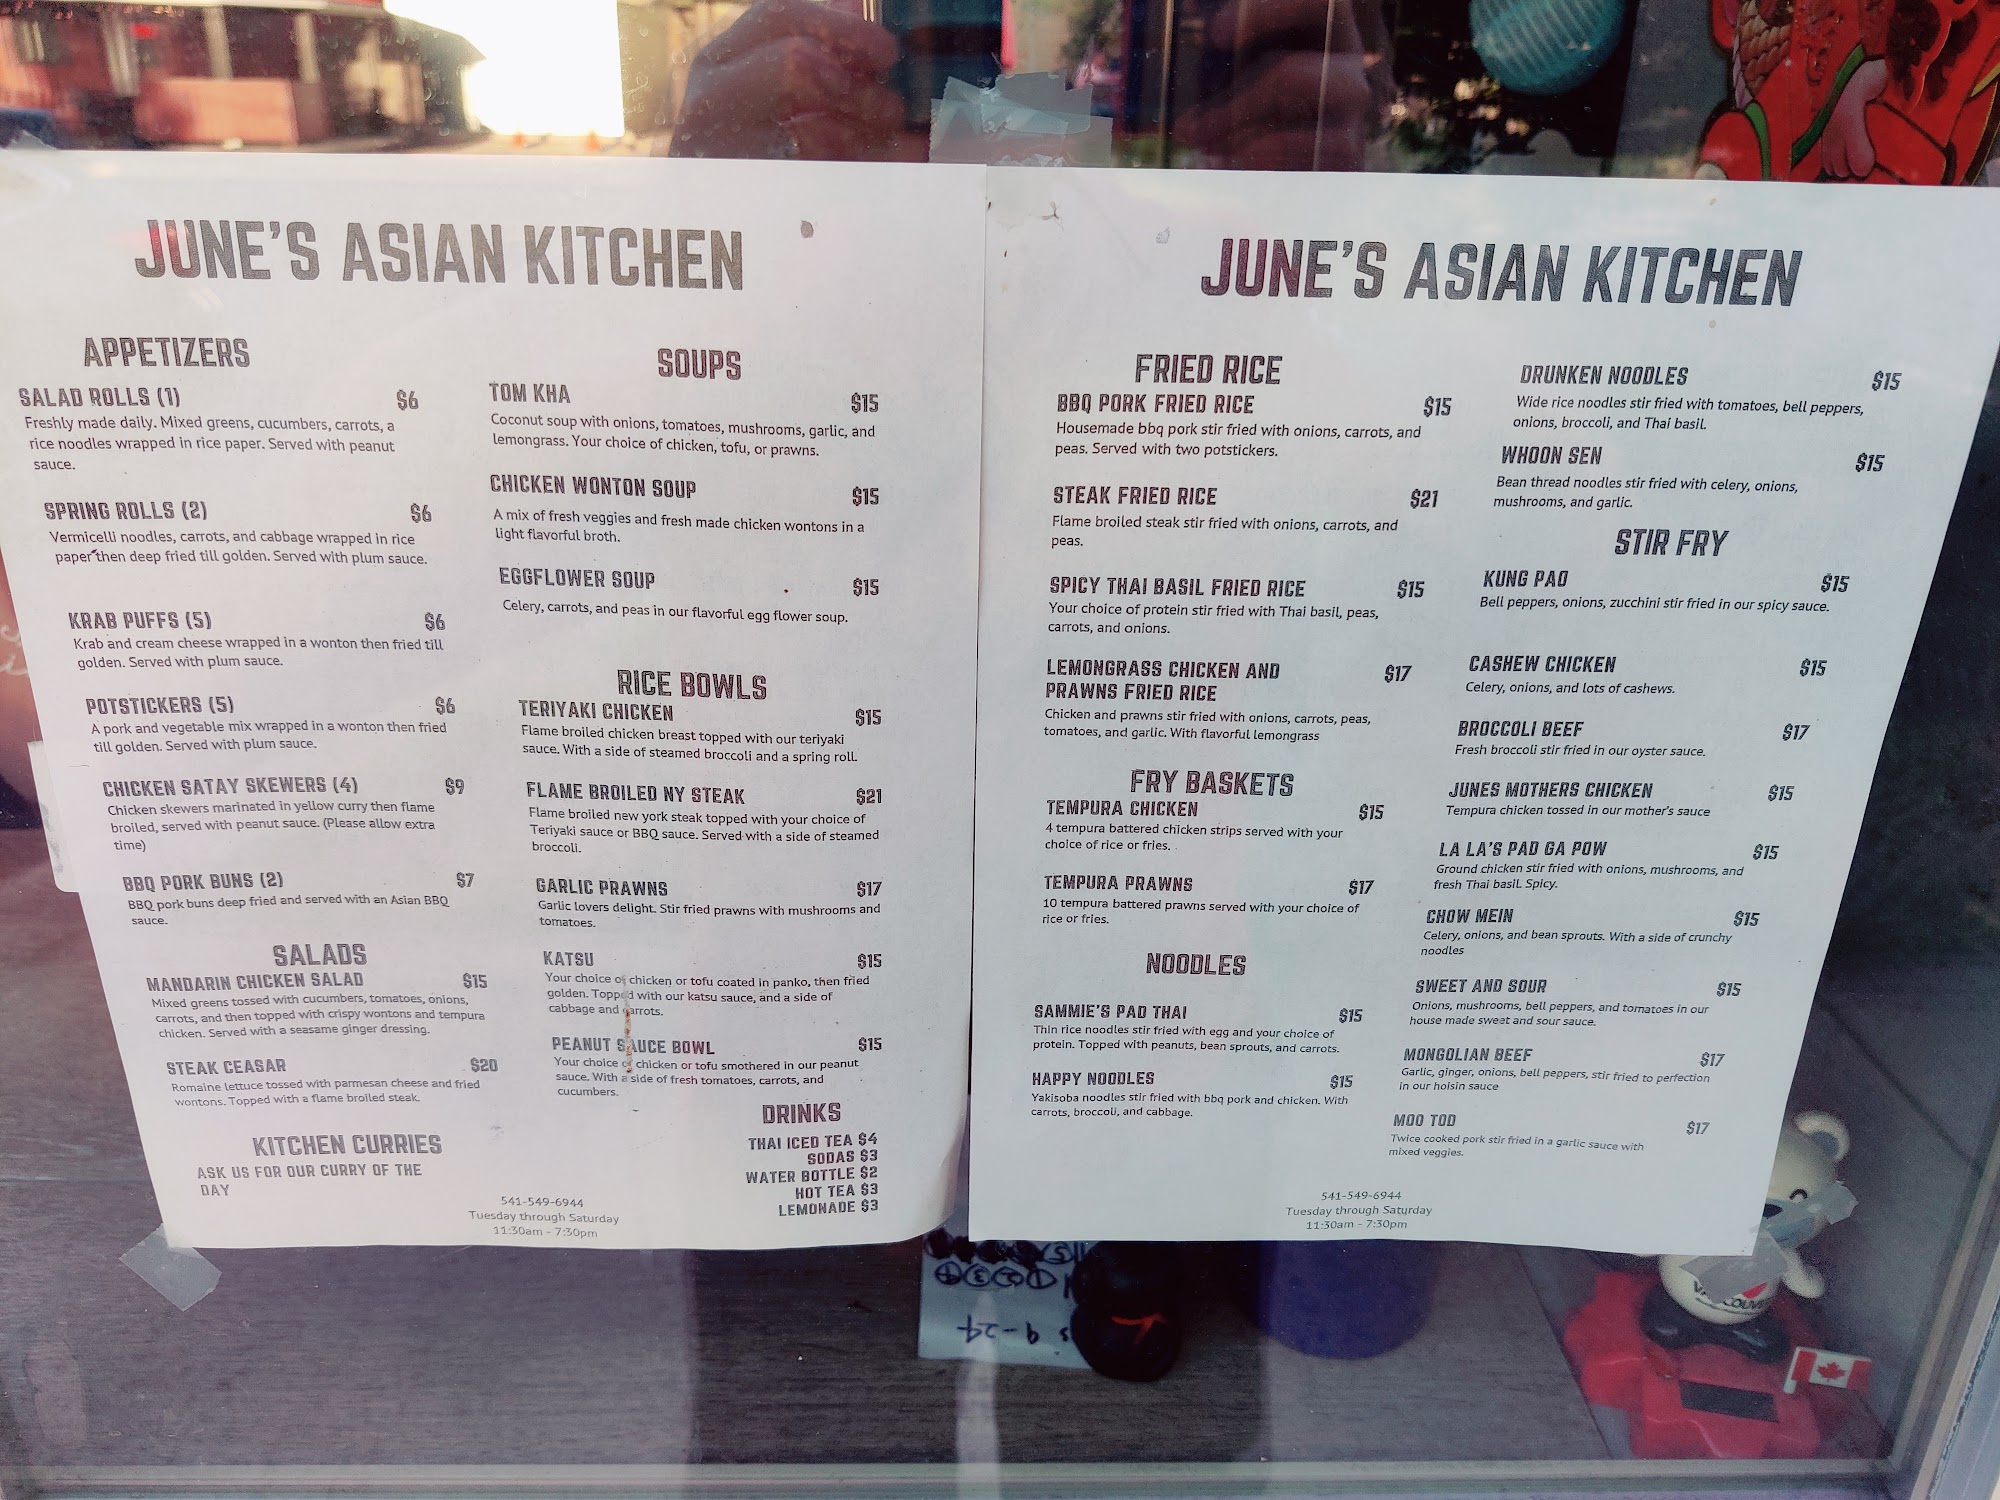 JUNE'S ASIAN KITCHEN
APPETIZERS
SALAD ROLLS (1) $6
Freshly made daily. Mixed greens, cucumbers, carrots, a
rice noodles wrapped in rice paper. Served with peanut
sauce.
SPRING ROLLS (2) $6
Vermicelli noodles, carrots, and cabbage wrapped in rice
paper then deep fried till golden. Served with plum sauce.
KRAB PUFFS (5) $6
Krab and cream cheese wrapped in a wonton then fried till
golden. Served with plum sauce.
POTSTICKERS (5) $6
A pork and vegetable mix wrapped in a wonton then fried
till golden. Served with plum sauce.
CHICKEN SATAY SKEWERS (4) $9
Chicken skewers marinated in yellow curry then flame
broiled, served with peanut sauce. (Please allow extra
time)
BBQ PORK BUNS (2) $7
BBQ pork buns deep fried and served with an Asian BBQ
sauce.
SALADS
MANDARIN CHICKEN SALAD $15
Mixed greens tossed with cucumbers, tomatoes, onions,
carrots, and then topped with crispy wontons and tempura
chicken. Served with a seasame ginger dressing.
STEAK CEASAR $20
Romaine lettuce tossed with parmesan cheese and fried
wontons. Topped with a flame broiled steak.
KITCHEN CURRIES
ASK US FOR OUR CURRY OF THE
DAY
SOUPS
TOM KHA $15
Coconut soup with onions, tomatoes, mushrooms, garlic, and
lemongrass. Your choice of chicken, tofu, or prawns.
CHICKEN WONTON SOUP $15
A mix of fresh veggies and fresh made chicken wontons in a
light flavorful broth.
EGGFLOWER SOUP $15
Celery, carrots, and peas in our flavorful egg flower soup.
RICE BOWLS
TERIYAKI CHICKEN $15
Flame broiled chicken breast topped with our teriyaki
sauce. With a side of steamed broccoli and a spring roll.
FLAME BROILED NY STEAK $21
Flame broiled new york steak topped with your choice of
Teriyaki sauce or BBQ sauce. Served with a side of steamed
broccoli.
GARLIC PRAWNS $17
Garlic lovers delight. Stir fried prawns with mushrooms and
tomatoes.
KATSU $15
Your choice of chicken or tofu coated in panko, then fried
golden. Topped with our katsu sauce, and a side of
cabbage and carrots.
PEANUT SAUCE BOWL $15
Your choice of chicken or tofu smothered in our peanut
sauce. With a side of fresh tomatoes, carrots, and
cucumbers.
DRINKS
THAI ICED TEA $4
SODAS $3
WATER BOTTLE $2
HOT TEA $3
LEMONADE $3
541-549-6944
Tuesday through Saturday
11:30am - 7:30pm
JUNE'S ASIAN KITCHEN
FRIED RICE
BBQ PORK FRIED RICE $15
Housemade bbq pork stir fried with onions, carrots, and
peas. Served with two potstickers.
STEAK FRIED RICE $21
Flame broiled steak stir fried with onions, carrots, and
peas.
SPICY THAI BASIL FRIED RICE $15
Your choice of protein stir fried with Thai basil, peas,
carrots, and onions.
LEMONGRASS CHICKEN AND $17
PRAWNS FRIED RICE
Chicken and prawns stir fried with onions, carrots, peas,
tomatoes, and garlic. With flavorful lemongrass
FRY BASKETS
TEMPURA CHICKEN $15
4 tempura battered chicken strips served with your
choice of rice or fries.
TEMPURA PRAWNS $17
10 tempura battered prawns served with your choice of
rice or fries.
NOODLES
SAMMIE'S PAD THAI $15
Thin rice noodles stir fried with egg and your choice of
protein. Topped with peanuts, bean sprouts, and carrots.
HAPPY NOODLES $15
Yakisoba noodles stir fried with bbq pork and chicken. With
carrots, broccoli, and cabbage.
DRUNKEN NOODLES $15
Wide rice noodles stir fried with tomatoes, bell peppers,
onions, broccoli, and Thai basil.
WHOON SEN $15
Bean thread noodles stir fried with celery, onions,
mushrooms, and garlic.
STIR FRY
KUNG PAO $15
Bell peppers, onions, zucchini stir fried in our spicy sauce.
CASHEW CHICKEN $15
Celery, onions, and lots of cashews.
BROCCOLI BEEF $17
Fresh broccoli stir fried in our oyster sauce.
JUNES MOTHERS CHICKEN $15
Tempura chicken tossed in our mother's sauce
LA LA'S PAD GA POW $15
Ground chicken stir fried with onions, mushrooms, and
fresh Thai basil. Spicy.
CHOW MEIN $15
Celery, onions, and bean sprouts. With a side of crunchy
noodles
SWEET AND SOUR $15
Onions, mushrooms, bell peppers, and tomatoes in our
house made sweet and sour sauce.
MONGOLIAN BEEF $17
Garlic, ginger, onions, bell peppers, stir fried to perfection
in our hoisin sauce
MOO TOD $17
Twice cooked pork stir fried in a garlic sauce with
mixed veggies.
541-549-6944
Tuesday through Saturday
11:30am - 7:30pm